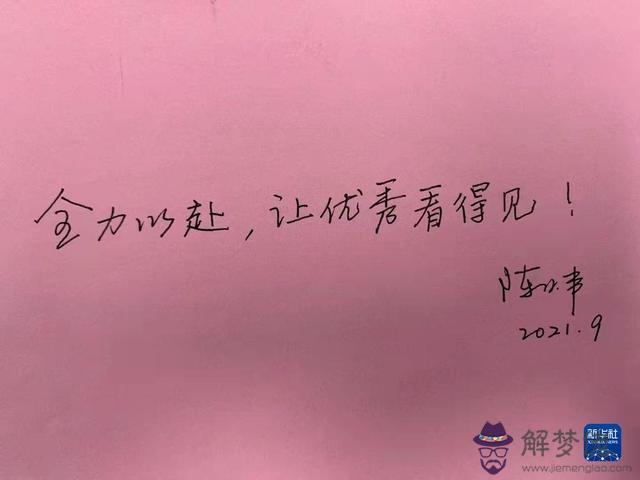 全力以赴，让优秀看得见！
陈
2021.9
新华社
XINHUA NEWS
解梦
www.jiemenglao.com